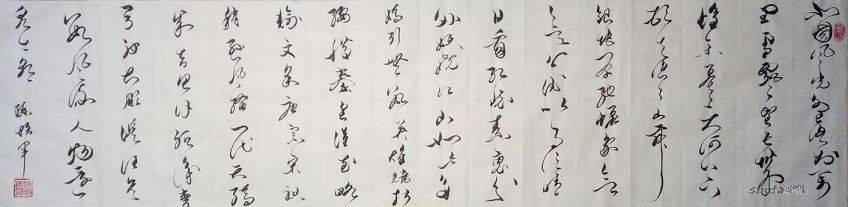 北国风光千里冰封万
里雪飘望长城内外
惟余莽莽大河上下
顿失滔滔山舞
银蛇原驰蜡象欲与
天公试比高须晴
日看红装素裹分
外妖娆江山如此多
娇引无数英雄竞折
腰惜秦皇汉武略
输文采唐宗宋祖
稍逊风骚一代天骄
成吉思汗只识弯
弓射大雕俱往矣
数风流人物还
看今朝